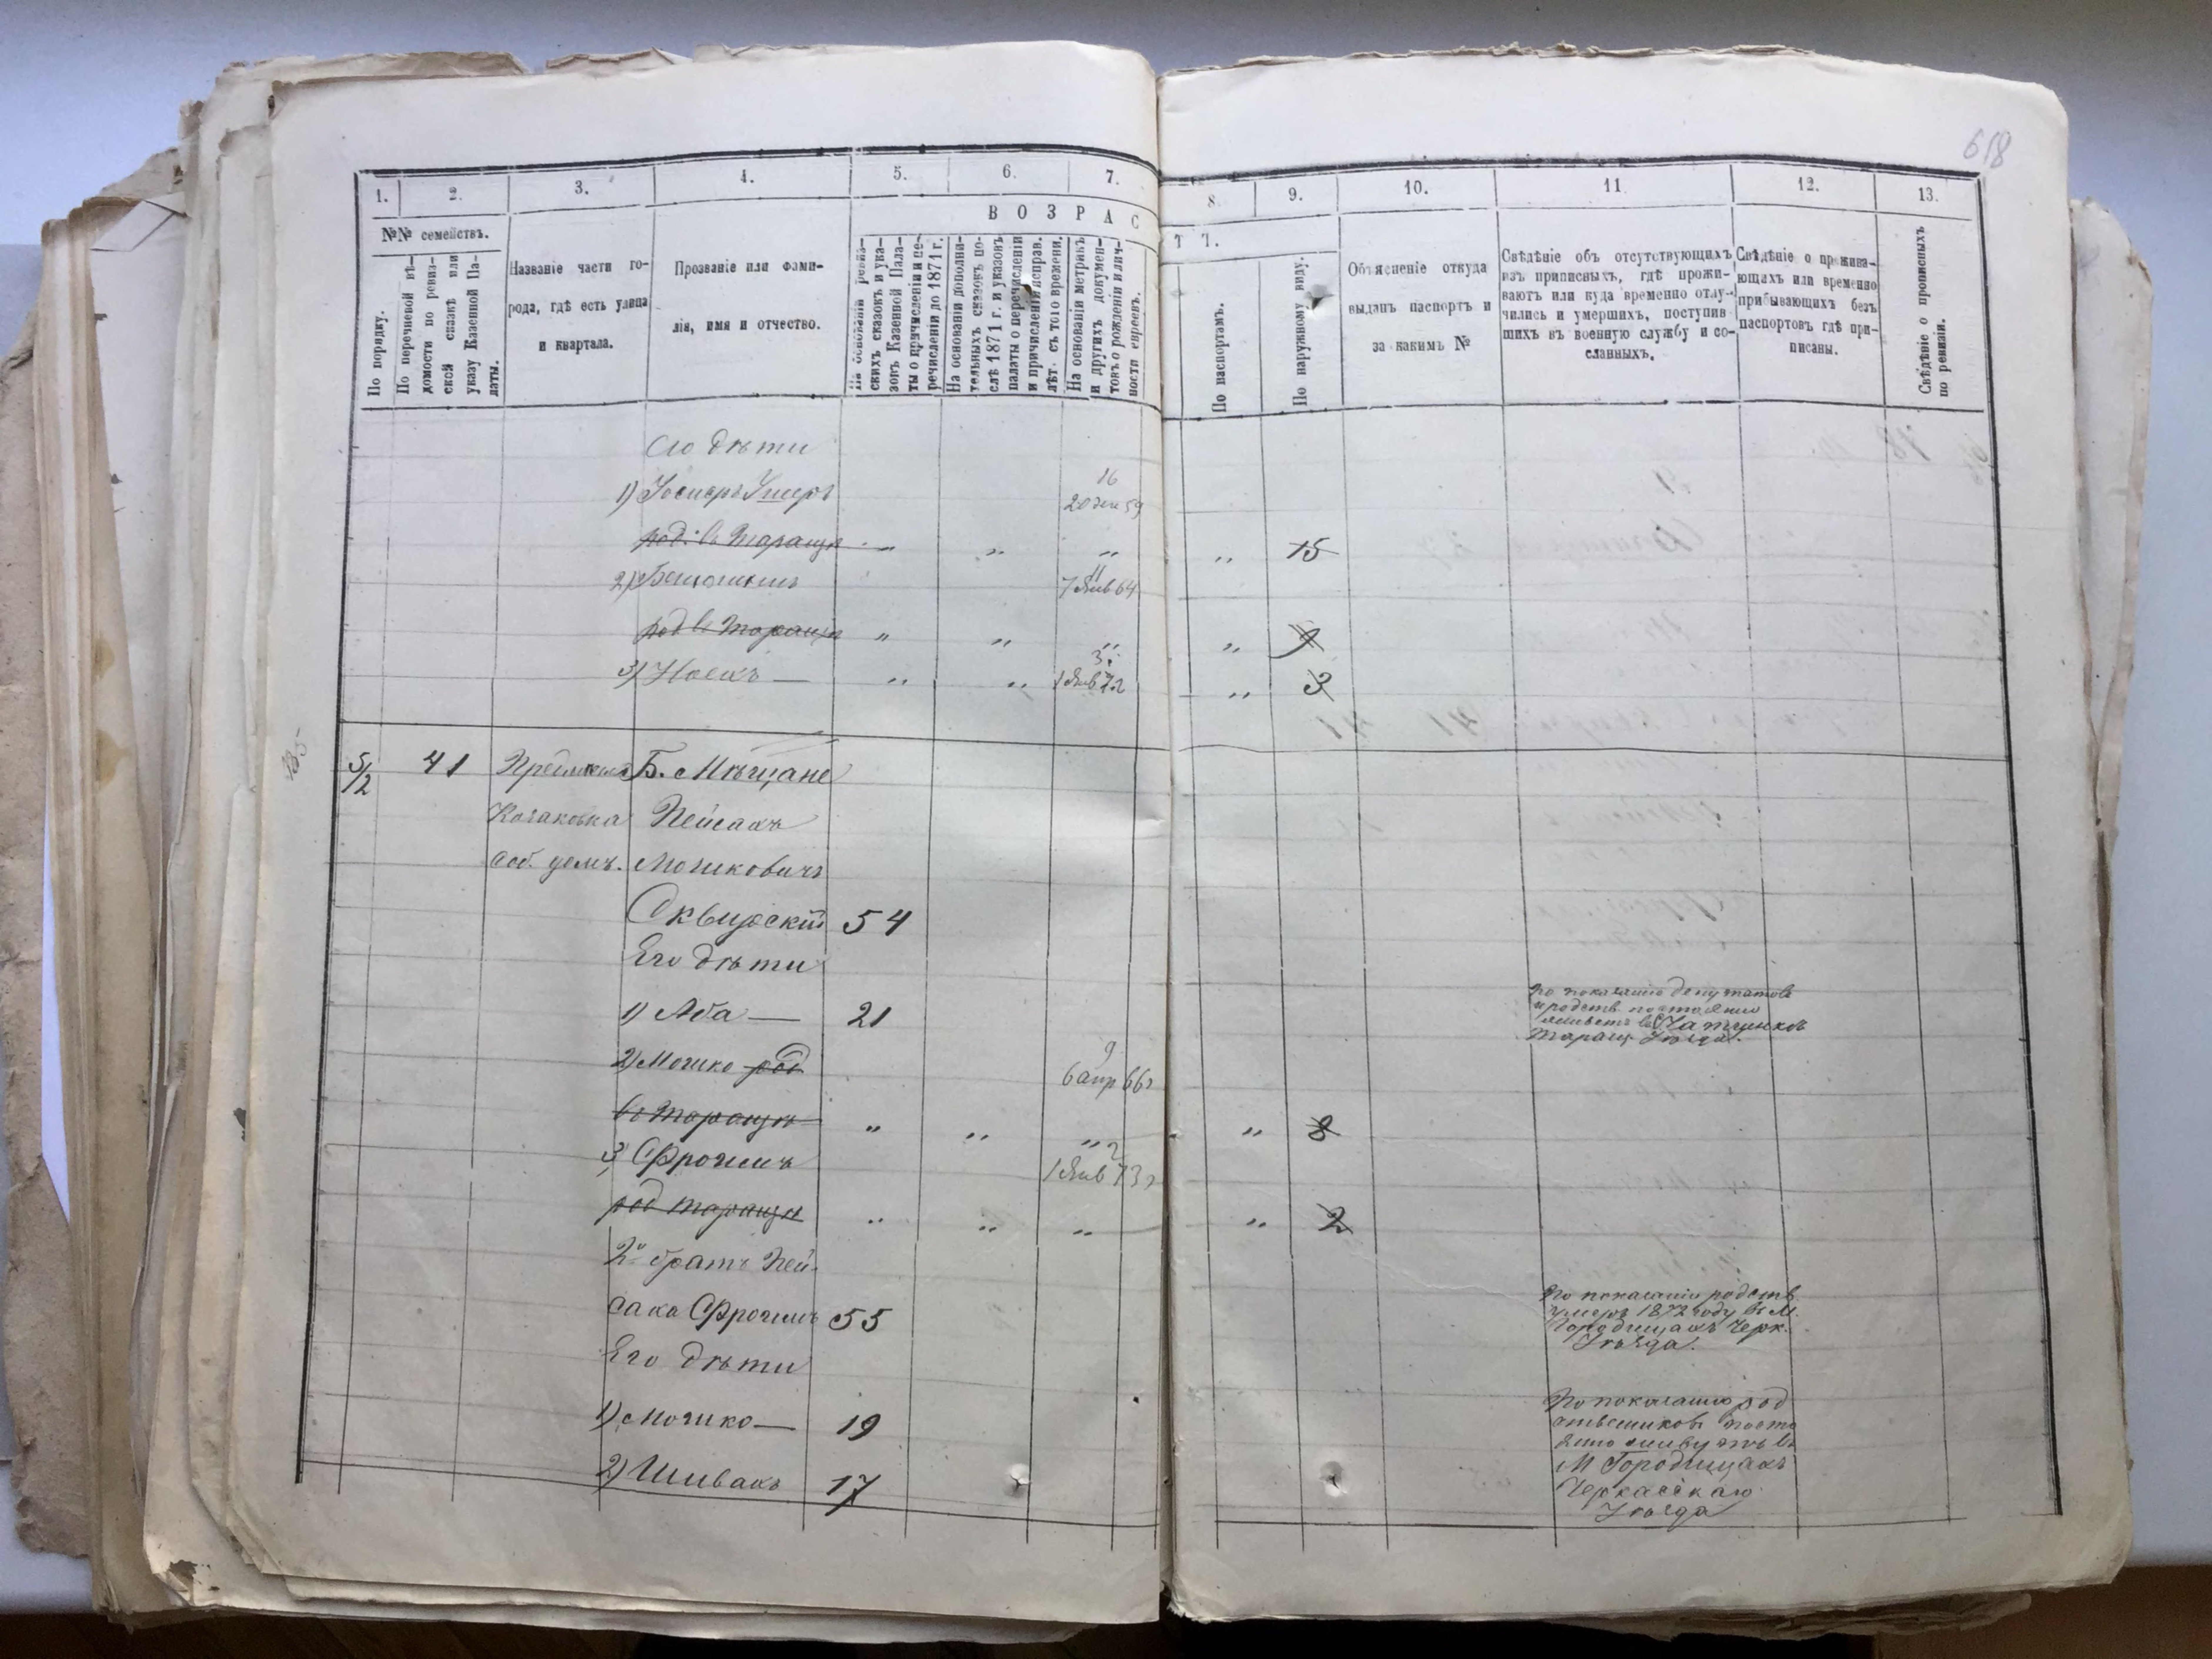 618
1. 2. 3. 4. 5. 6. 7. 8. 9. 10. 11. 12. 13.
№№ семействъ.
В О З Р А С Т Ъ.
По порядку.
По перечневой вѣ-
домости по ревиз-
ской сказкѣ или
указу Казенной Па-
латы.
Названіе части го-
рода, гдѣ есть улица
и квартала.
Прозваніе или фами-
лія, имя и отчество.
На основаніи ревиз-
скихъ сказокъ и ука-
зовъ Казенной Пала-
ты о причисленіи и пе-
речисленіи до 1871 г.
На основаніи дополни-
тельныхъ сказокъ по-
слѣ 1871 г. и указовъ
палаты о перечисленіи
и причисленіи исправ.
лѣт. съ того времени.
На основаніи метрикъ
и другихъ докумен-
товъ о рожденіи и лич-
ности евреевъ.
По паспортамъ.
По наружному виду.
Объясненіе откуда
выданъ паспортъ и
за какимъ №
Свѣдѣніе объ отсутствующихъ
изъ приписныхъ, гдѣ прожи-
ваютъ или куда временно отлу-
чились и умершихъ, поступив
шихъ въ военную службу и со-
сланныхъ.
Свѣдѣніе о прожива-
ющихъ или временно
прибывающихъ безъ
паспортовъ гдѣ при-
писаны.
Свѣдѣніе о прописныхъ
по ревизіи.
Его дѣти
1) 16
20 59
род: въ Таращѣ „ „ „ „ 15
2) 11
7 Янв 64
род въ Таращѣ „ „ „ „
3) Носихъ — „ „ 3 „ 3
1 Янв 72
5/2 41 Предмѣстье Б. Мѣщане
Козаковка Пейсахъ
Соб. домъ. Мошковичъ
Сквирскій 54
Его дѣти
1) Аба — 21
По показанію депутатовъ
и родств. постоянно
живетъ въ
Таращ. Уѣзда.
2) Мошко род 9
6 апр 66 г
въ Таращѣ „ „ „ „ 8
3) Фроимъ 2
1 Янв 73 г
род Таращѣ „ „ „ „ 2
2й братъ Пей-
саха Фроимъ 55
По показанію родств.
умеръ 1872 году въ М.
Городищахъ Черк.
Уѣзда.
Его дѣти
1) Мошко — 19
2) Шивакъ 17
По показанію род
ственниковъ посто
янно живутъ въ
М Городищахъ
Черкасскаго
Уѣзда